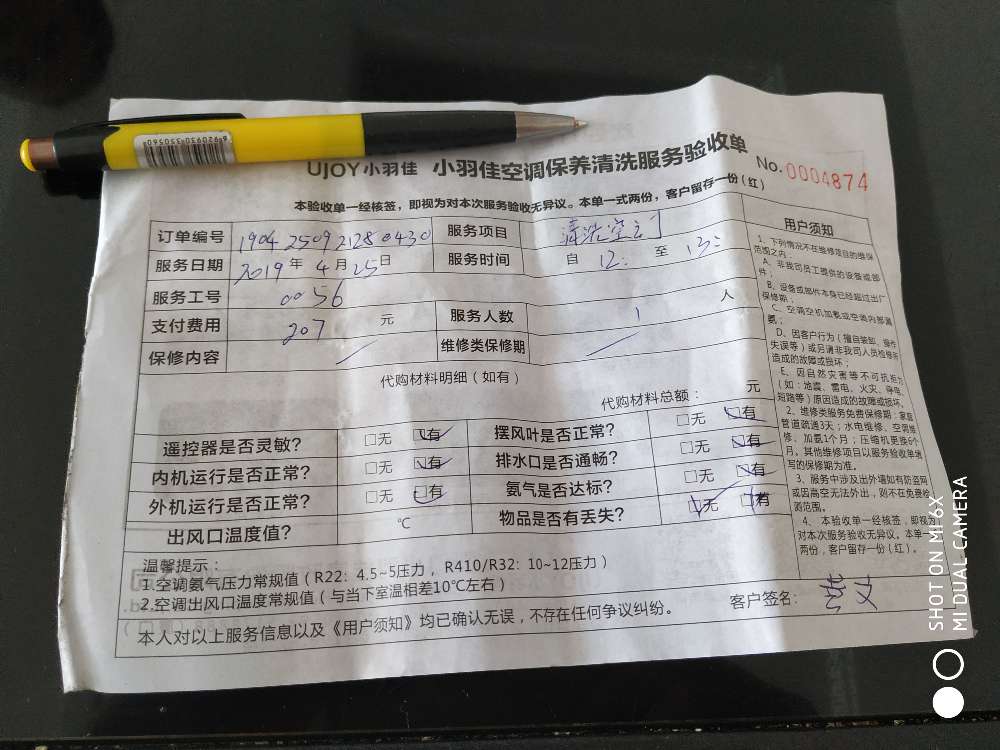 6 920930 350560
UJOY小羽佳 小羽佳空调保养清洗服务验收单
No. 0004874
本验收单一经核签，即视为对本次服务验收无异议。本单一式两份，客户留存一份（红）
订单编号 1904 2509 2128 0430 服务项目 清洗空调
服务日期 2019 年 4 月 25 日 服务时间 自 12: 至 13:
服务工号 0056
支付费用 207 元 服务人数 1 人
保修内容 维修类保修期
代购材料明细（如有）
代购材料总额： 元
遥控器是否灵敏？ □无 □有 摆风叶是否正常？ □无 □有
内机运行是否正常？ □无 □有 排水口是否通畅？ □无 □有
外机运行是否正常？ □无 □有 氨气是否达标？ □无 □有
出风口温度值？ ℃ 物品是否有丢失？ □无 □有
温馨提示：
1.空调氨气压力常规值（R22: 4.5~5压力，R410/R32: 10~12压力）
2.空调出风口温度常规值（与当下室温相差10℃左右）
本人对以上服务信息以及《用户须知》均已确认无误，不存在任何争议纠纷。 客户签名：
用户须知
1、下列情况不在维修项目的维保
范围之内：
A、非我司员工提供的设备或部
件；
B、设备或部件本身已经超过出厂
保修期；
C、空调空机加氨或空调内部漏
氨；
D、因客户行为（擅自装卸、操作
失误等）或另请非我司人员检修所
造成的故障或损坏；
E、因自然灾害等不可抗拒力
（如：地震、雷电、火灾、停电、
短路等）原因造成的故障或损坏。
2、维修类服务免费保修期：家庭
管道疏通3天；水电维修、空调维
修、加氨1个月；压缩机更换6个
月。其他维修项目以服务验收单填
写的保修期为准。
3、服务中涉及出外墙如有防盗网
或因高空无法外出，则不在免费检
测范围。
4、本验收单一经核签，即视为
对本次服务验收无异议。本单一式
两份，客户留存一份（红）。
SHOT ON MI 6X
MI DUAL CAMERA